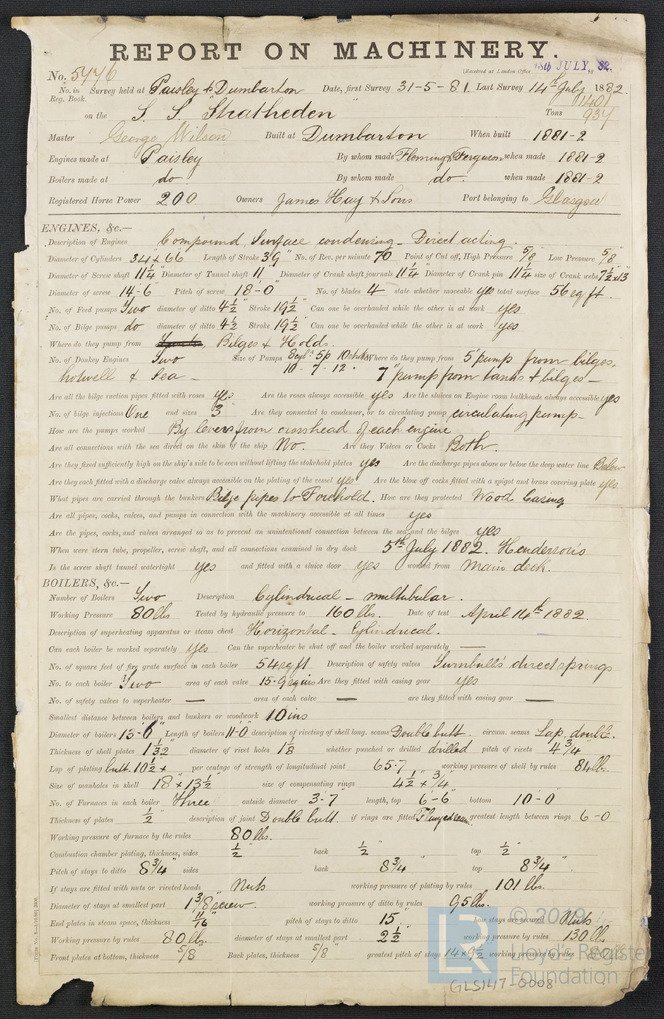 REPORT ON MACHINERY.
No. 5446 (Received at London Office 18th JULY, 82.
No. in Reg. Book. Survey held at Paisley & Dumbarton Date, first Survey 31-5-81. Last Survey 14th July 1882.
on the S. S. "Stratheden" Tons 1401 934
Master George Wilson Built at Dumbarton When built 1881-2
Engines made at Paisley By whom made Fleming & Ferguson when made 1881-2
Boilers made at do By whom made do. when made 1881-2
Registered Horse Power 200 Owners James Hay & Sons Port belonging to Glasgow
ENGINES, &c.—
Description of Engines Compound Surface condensing - Direct acting.
Diameter of Cylinders 34 & 66 Length of Stroke 39" No. of Rev. per minute 70 Point of Cut off, High Pressure 5/8 Low Pressure 5/8
Diameter of Screw shaft 11 1/4" Diameter of Tunnel shaft 11" Diameter of Crank shaft journals 11 1/4 Diameter of Crank pin 11 1/4 size of Crank webs 7 1/2 x 13
Diameter of screw 14-6 Pitch of screw 18'-0" No. of blades 4 state whether moveable yes total surface 56 sq ft.
No. of Feed pumps Two diameter of ditto 4 1/2" Stroke 19 1/2" Can one be overhauled while the other is at work yes
No. of Bilge pumps do diameter of ditto 4 1/2 Stroke 19 1/2" Can one be overhauled while the other is at work yes
Where do they pump from Bilges & Holds.
No. of Donkey Engines Two Size of Pumps Where do they pump from 5" pump from bilges,
hotwell & Sea - 7" pump from tanks & bilges -
Are all the bilge suction pipes fitted with roses yes Are the roses always accessible yes Are the sluices on Engine room bulkheads always accessible yes
No. of bilge injections One and sizes 3" Are they connected to condenser, or to circulating pump circulating pump -
How are the pumps worked By levers from crosshead of each engine
Are all connections with the sea direct on the skin of the ship No. Are they Valves or Cocks Both.
Are they fixed sufficiently high on the ship's side to be seen without lifting the stokehold plates yes Are the discharge pipes above or below the deep water line Below
Are they each fitted with a discharge valve always accessible on the plating of the vessel yes Are the blow off cocks fitted with a spigot and brass covering plate yes
What pipes are carried through the bunkers Bilge pipes to Forehold. How are they protected Wood Casing
Are all pipes, cocks, valves, and pumps in connection with the machinery accessible at all times yes
Are the pipes, cocks, and valves arranged so as to prevent an unintentional connection between the sea and the bilges yes
When were stern tube, propeller, screw shaft, and all connections examined in dry dock 5th July 1882. Henderson's
Is the screw shaft tunnel watertight yes and fitted with a sluice door yes worked from Main deck.
BOILERS, &c.—
Number of Boilers Two Description Cylindrical - multubular.
Working Pressure 80 lbs Tested by hydraulic pressure to 160 lbs. Date of test April 14th 1882.
Description of superheating apparatus or steam chest Horizontal - Cylindrical.
Can each boiler be worked separately yes Can the superheater be shut off and the boiler worked separately —
No. of square feet of fire grate surface in each boiler 54 sq ft Description of safety valves Turnbull's direct springs
No. to each boiler Two area of each valve 15.9 sq ins Are they fitted with easing gear yes
No. of safety valves to superheater — area of each valve — are they fitted with easing gear —
Smallest distance between boilers and bunkers or woodwork 10 ins
Diameter of boilers 13'-6" Length of boilers 11'-0 description of riveting of shell long. seams Double butt. circum. seams Lap. double.
Thickness of shell plates 1 1/32" diameter of rivet holes 1 1/8 whether punched or drilled drilled pitch of rivets 4 3/4"
Lap of plating butt. 10 1/2 x per centage of strength of longitudinal joint 65.7 working pressure of shell by rules 84 lb.
Size of manholes in shell 18" x 13 1/2" size of compensating rings 4 1/2" x 3/4"
No. of Furnaces in each boiler Three outside diameter 3'-7" length, top 6'-6" bottom 10'-0
Thickness of plates 1/2" description of joint Double butt if rings are fitted Flanged seam greatest length between rings 6-0
Working pressure of furnace by the rules 80 lbs.
Combustion chamber plating, thickness, sides 1/2" back 1/2" top 1/2"
Pitch of stays to ditto 8 3/4" sides back 8 3/4" top 8 3/4"
If stays are fitted with nuts or riveted heads Nuts working pressure of plating by rules 101 lbs.
Diameter of stays at smallest part 1 3/8" screw. working pressure of ditto by rules 95 lbs.
End plates in steam space, thickness 11/16" pitch of stays to ditto 15" how stays are secured Nuts
Working pressure by rules 80 lbs. diameter of stays at smallest part 2 1/2" working pressure by rules 130 lb.
Front plates at bottom, thickness 5/8 Back plates, thickness 5/8" greatest pitch of stays 14 x 9 1/2 working pressure by rules
LR © 2019
Lloyd's Register
Foundation
GLS147-0008